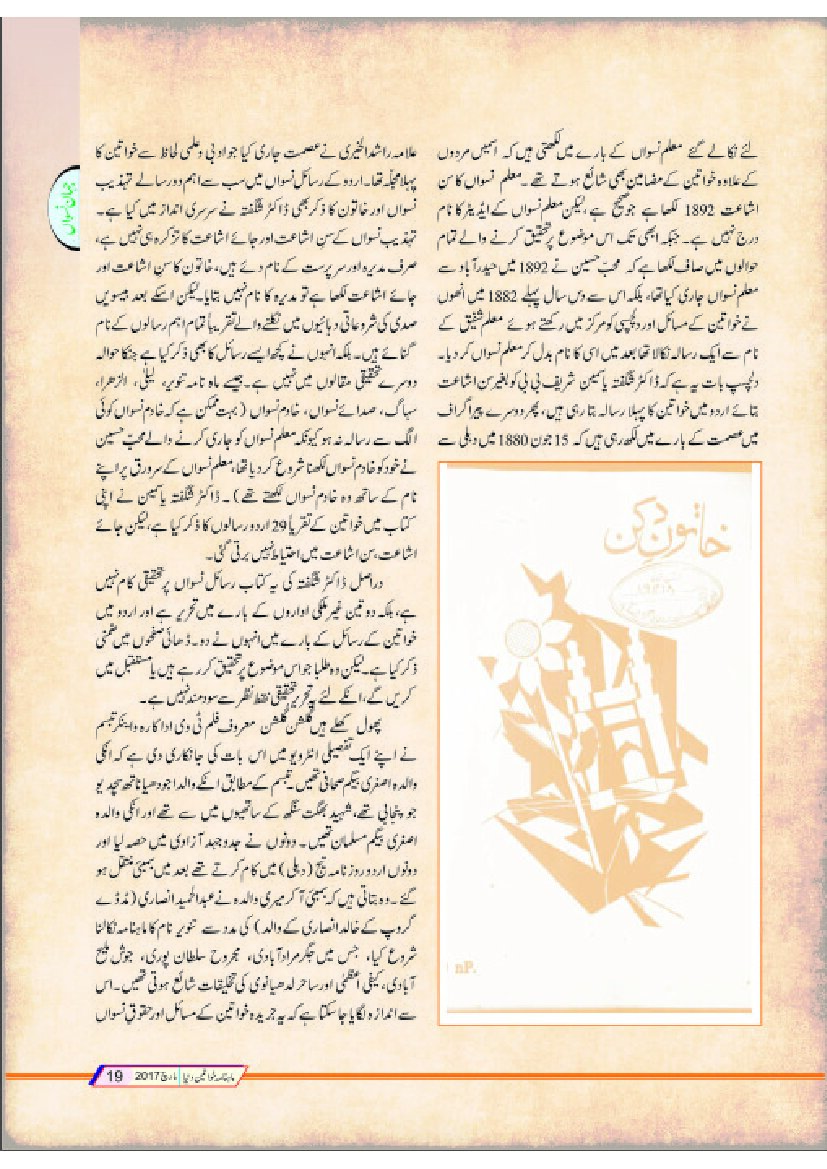 لئے نکالے گئے معلم نسواں کے بارے میں لکھتی ہیں کہ اسمیں مردوں
کے علاوہ خواتین کے مضامین بھی شائع ہوتے تھے۔ معلم نسواں کا سن
اشاعت 1892 لکھا ہے جو صحیح ہے، لیکن معلم نسواں کے ایڈیٹر کا نام
درج نہیں ہے۔ جبکہ ابھی تک اس موضوع پر تحقیق کرنے والے تمام
حوالوں میں صاف لکھا ہے کہ محب حسین نے 1892 میں حیدرآباد سے
معلم نسواں جاری کیا تھا، بلکہ اس سے دس سال پہلے 1882 میں انھوں
نے خواتین کے مسائل اور دلچسپی کو مرکز میں رکھتے ہوئے معلم شفیق کے
نام سے ایک رسالہ نکالا تھا بعد میں اسی کا نام بدل کر معلم نسواں کر دیا۔
دلچسپ بات یہ ہے کہ ڈاکٹر شگفتہ یاسمین شریف بی بی کو بغیر سن اشاعت
بتائے اردو میں خواتین کا پہلا رسالہ بتا رہی ہیں، پھر دوسرے پیراگراف
میں عصمت کے بارے میں لکھ رہی ہیں کہ 15 جون 1880 میں دہلی سے
خاتونِ دکن
nP.
علامہ راشد الخیری نے عصمت جاری کیا جو ادبی و علمی لحاظ سے خواتین کا
پہلا مجلّہ تھا۔ اردو کے رسائل نسواں میں سب سے اہم دو رسالے تہذیب
نسواں اور خاتون کا ذکر بھی ڈاکٹر شگفتہ نے سرسری انداز میں کیا ہے۔
تہذیب نسواں کے سن اشاعت اور جائے اشاعت کا تزکرہ ہی نہیں ہے،
صرف مدیرہ اور سرپرست کے نام دئے ہیں، خاتون کا سن اشاعت اور
جائے اشاعت لکھا ہے تو مدیرہ کا نام نہیں بتایا۔ لیکن اسکے بعد بیسویں
صدی کی شروعاتی دہائیوں میں نکلنے والے تقریباً تمام اہم رسالوں کے نام
گنائے ہیں۔ بلکہ انہوں نے کچھ ایسے رسائل کا بھی ذکر کیا ہے جنکا حوالہ
دوسرے تحقیقی مقالوں میں نہیں ہے۔ جیسے ماہ نامہ تنویر، لیلیٰ، الزھرا،
سہاگ، صدائے نسواں، خادم نسواں (بہت ممکن ہے کہ خادم نسواں کوئی
الگ سے رسالہ نہ ہو کیونکہ معلم نسواں کو جاری کرنے والے محب حسین
نے خود کو خادم نسواں لکھنا شروع کر دیا تھا، معلم نسواں کے سرورق پر اپنے
نام کے ساتھ وہ خادم نسواں لکھتے تھے)۔ ڈاکٹر شگفتہ یاسمین نے اپنی
کتاب میں خواتین کے تقریباً 29 اردو رسالوں کا ذکر کیا ہے، لیکن جائے
اشاعت، سن اشاعت میں احتیاط نہیں برتی گئی۔
دراصل ڈاکٹر شگفتہ کی یہ کتاب رسائل نسواں پر تحقیقی کام نہیں
ہے، بلکہ دو تین غیر ملکی اداروں کے بارے میں تحریر ہے اور اردو میں
خواتین کے رسائل کے بارے میں انہوں نے دو۔ ڈھائی صفحوں میں ضمنی
ذکر کیا ہے۔ لیکن وہ طلبا جو اس موضوع پر تحقیق کر رہے ہیں یا مستقبل میں
کریں گے، انکے لئے یہ تحریر تحقیقی نقطۂ نظر سے سود مند نہیں ہے۔
پھول کھلے ہیں گلشن گلشن معروف فلم ٹی وی اداکارہ و اینکر تبسم
نے اپنے ایک تفصیلی انٹرویو میں اس بات کی جانکاری دی ہے کہ انکی
والدہ اصغری بیگم صحافی تھیں۔ تبسم کے مطابق انکے والد اجودھیا ناتھ سچدیو
جو پنجابی تھے، شہید بھگت سنگھ کے ساتھیوں میں سے تھے اور انکی والدہ
اصغری بیگم مسلمان تھیں۔ دونوں نے جدوجہد آزادی میں حصہ لیا اور
دونوں اردو روزنامہ تیج (دہلی) میں کام کرتے تھے بعد میں بمبئی منتقل ہو
گئے۔ وہ بتاتی ہیں کہ بمبئی آ کر میری والدہ نے عبدالحمید انصاری (مڈ ڈے
گروپ کے خالد انصاری کے والد) کی مدد سے تنویر نام کا ماہنامہ نکالنا
شروع کیا، جس میں جگر مراد آبادی، مجروح سلطان پوری، جوش ملیح
آبادی، کیفی اعظمی اور ساحر لدھیانوی کی تخلیقات شائع ہوتی تھیں۔ اس
سے اندازہ لگایا جا سکتا ہے کہ یہ جریدہ خواتین کے مسائل اور حقوق نسواں
جہان نسواں
ماہنامہ خواتین دنیا | مارچ 2017 19